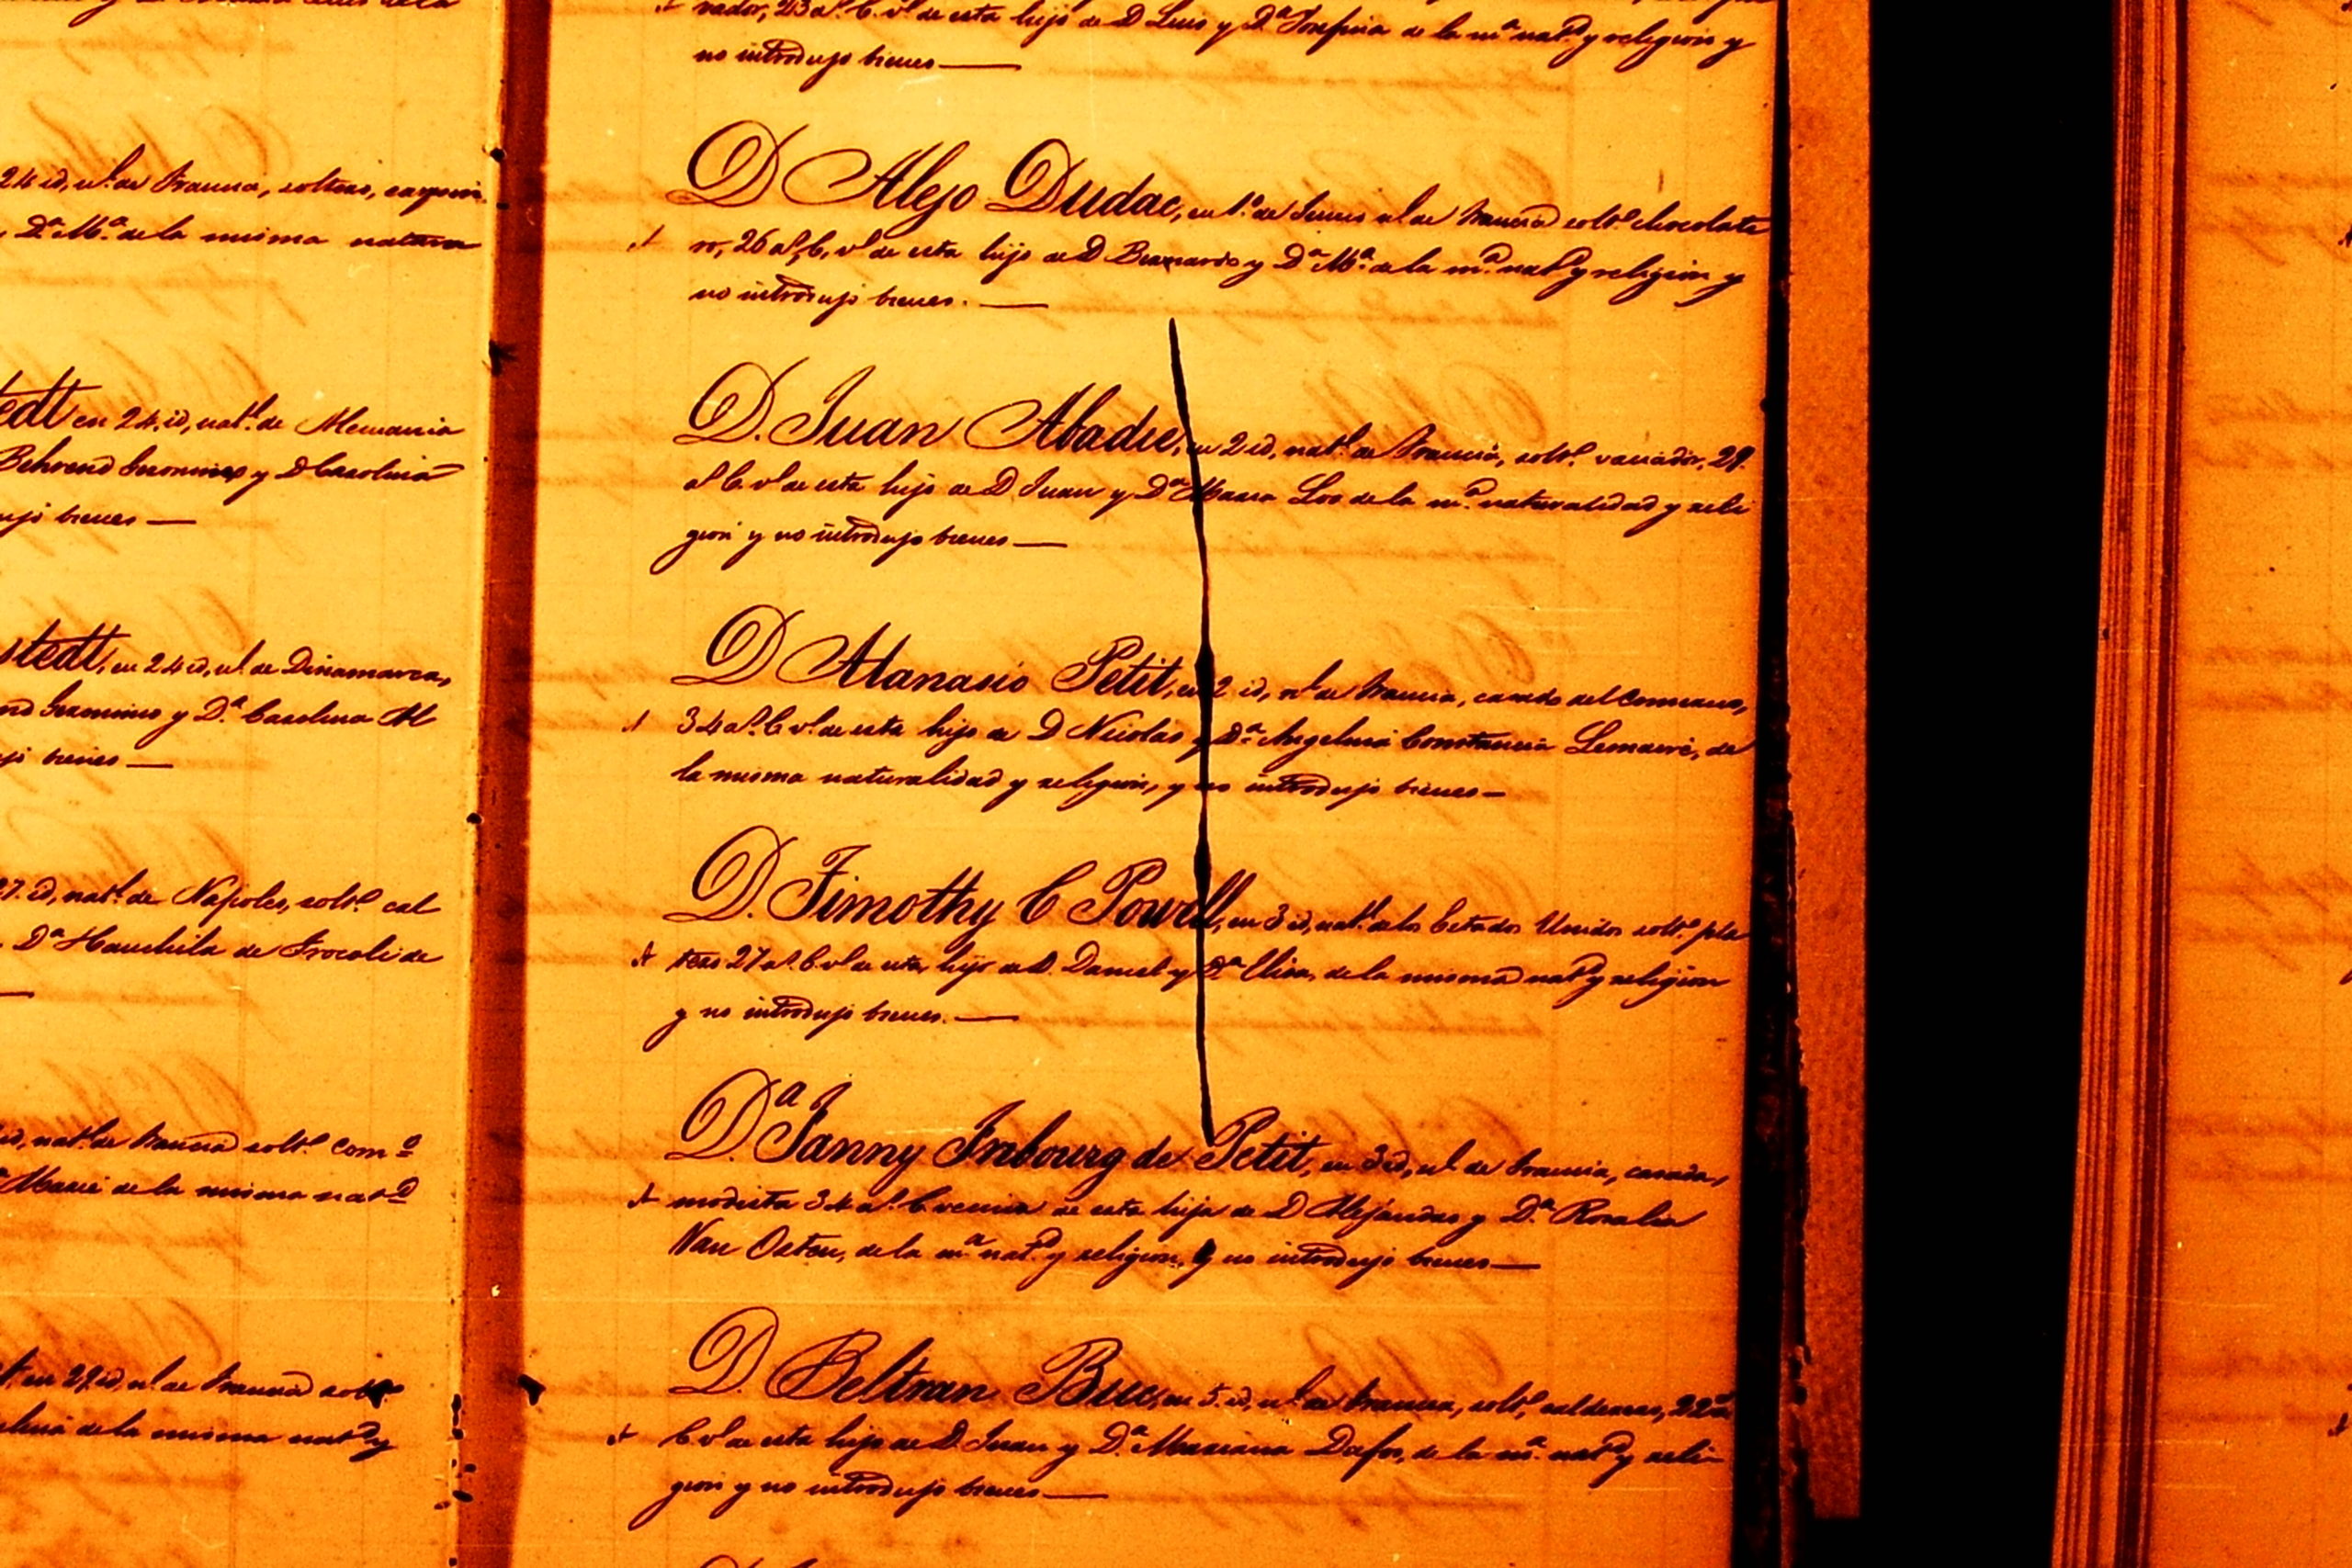 24 id, nl. de Francia, soltero, carpin
Dª Mª de la misma natura
tedt en 24 id, natl. de Alemania
Behrend Geronimo y D Carolina
bienes —
stedt, en 24 id, nl. de Dinamarca,
Geronimo y D.ª Carolina Al
bienes —
27. id, natl. de Napoles, solt.º cal
Dª de
id, natl. de Francia solt.º Com.º
de la misma natd
en 29 id, nl. de Francia solt.º
de la misma natd y
vador, 23 aˢ. C. vº de esta hijo de D Luis y Dª Josefina de la mª natd. y religion y
no introdujo bienes —
D Alejo Dudac, en 1.º de Junio nl. de Francia solt.º chocolate
ro, 26 aˢ, C, vº de esta hijo de D Bernardo y Dª Mª de la mª natd y religion y
no introdujo bienes. —
D. Juan Abadie, en 2 id, natl. de Francia, solt.º vaciador, 29.
aˢ C. vº de esta hijo de D Juan y Dª Maria Loo de la mª naturalidad y reli
gion y no introdujo bienes —
D Atanasio Petit, en 2 id, nl. de Francia, casado del Comercio,
34 aˢ. C vº. de esta hijo de D Nicolas y Dª Angelina Constancia Lemaire, de
la misma naturalidad y religion, y no introdujo bienes —
D. Timothy C Powell, en 3 id, natl. de los Estados Unidos solt.º pla
tero 27 aˢ. C vº de esta hijo de D. Daniel y Dª Elisa, de la misma natd y religion
y no introdujo bienes. —
D.ª Fanny Inbourg de Petit, en 3 id, nl. de Francia, casada,
modista 34 aˢ. C vecina de esta hija de D Alejandro y D.ª Rosalia
Van Osten, de la mª natd. y religion, y no introdujo bienes —
D. Beltran Buc, en 5. id, nl. de Francia, solt.º, calderero, 22 aˢ
C vº de esta hijo de D. Juan y D.ª Mariana Dafos, de la mª. natd y reli-
gion y no introdujo bienes —